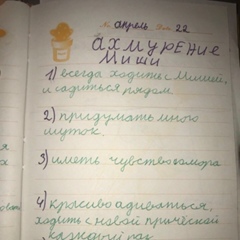 апрель 22
ахмурение
Миши
1) всегда ходить с Мишей,
и садиться рядом
2) придумать много
шуток.
3) иметь чувство юмора
4) красиво адиваться,
ходить с новой прической
каждый раз